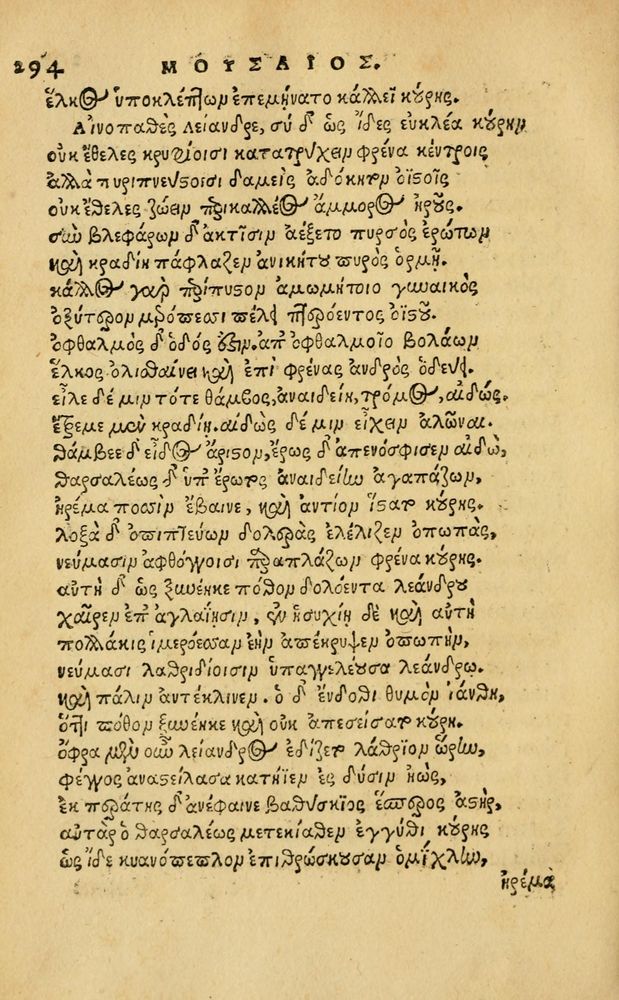 294 ΜΟΥΣΑΙΟΣ.
ἕλκος ὑποκλέπτων ἐπεμήνατο κάλλεϊ κούρης.
Αἰνοπαθὲς λείανδρε, σύ δ' ὡς ἴδες εὐκλέα κούρην
οὐκ ἔθελες κρυφίοισι κατατρύχειν φρένα κέντροις
ἀλλὰ πυριπνεύστοισι δαμεὶς ἀδόκητον ὀϊστοῖς
οὐκ ἔθελες ζώειν περικαλλέος ἄμμορος ἡροῦς.
σὺν βλεφάρων δ' ἀκτῖσιν ἀέξετο πυρσὸς ἐρώτων
καὶ κραδίη πάφλαζεν ἀνικήτου πυρὸς ὁρμῇ.
κάλλος γὰρ περίπυστον ἀμωμήτοιο γυναικὸς
ὀξύτερον μερόπεσσι πέλει πτερόεντος ὀϊστοῦ.
ὀφθαλμὸς δ' ὁδός ἐστιν. ἀπ' ὀφθαλμοῖο βολάων
ἕλκος ὀλισθαίνει καὶ ἐπὶ φρένας ἀνδρὸς ὁδεύει.
εἷλε δέ μιν τότε θάμβος, ἀναιδείη, τρόμος, αἰδώς.
ἔτρεμε μὲν κραδίη. αἰδὼς δέ μιν εἶχεν ἁλῶναι.
θάμβεε δ' εἶδος ἄριστον, ἔρως δ' ἀπενόσφισεν αἰδῶ,
θαρσαλέως δ' ὑπ' ἔρωτος ἀναιδείην ἀγαπάζων,
ἠρέμα ποσσὶν ἔβαινε, καὶ ἀντίον ἵστατο κούρης.
λοξὰ δ' ὀπιπτεύων δολερὰς ἐλέλιζεν ὀπωπὰς,
νεύμασιν ἀφθόγγοισι παραπλάζων φρένα κούρης.
αὐτὴ δ' ὡς ξυνέηκε πόθον δολόεντα λεάνδρου
χαῖρεν ἐπ' ἀγλαΐησιν, ἐν ἡσυχίῃ δὲ καὶ αὐτὴ
πολλάκις ἱμερόεσσαν ἑὴν ἀπέκρυψεν ὀπωπὴν,
νεύμασι λαθριδίοισιν ὑπαγγελέουσα λεάνδρῳ.
καὶ πάλιν ἀντέκλινεν. ὁ δ' ἔνδοθι θυμὸν ἰάνθη,
ὅττι πόθον ξυνέηκε καὶ οὐκ ἀπεσείσατο κούρη.
ὄφρα μὲν οὖν λείανδρος ἐδίζετο λάθριον ὥρην,
φέγγος ἀναστείλασα κατήϊεν ἐς δύσιν ἠώς,
ἐκ περάτης δ' ἀνέφαινε βαθύσκιος ἕσπερος ἀστήρ,
αὐτὰρ ὁ θαρσαλέως μετεκίαθεν ἐγγύθι κούρης
ὡς ἴδε κυανόπεπλον ἐπιθρώσκουσαν ὀμίχλην,
ἠρέμα